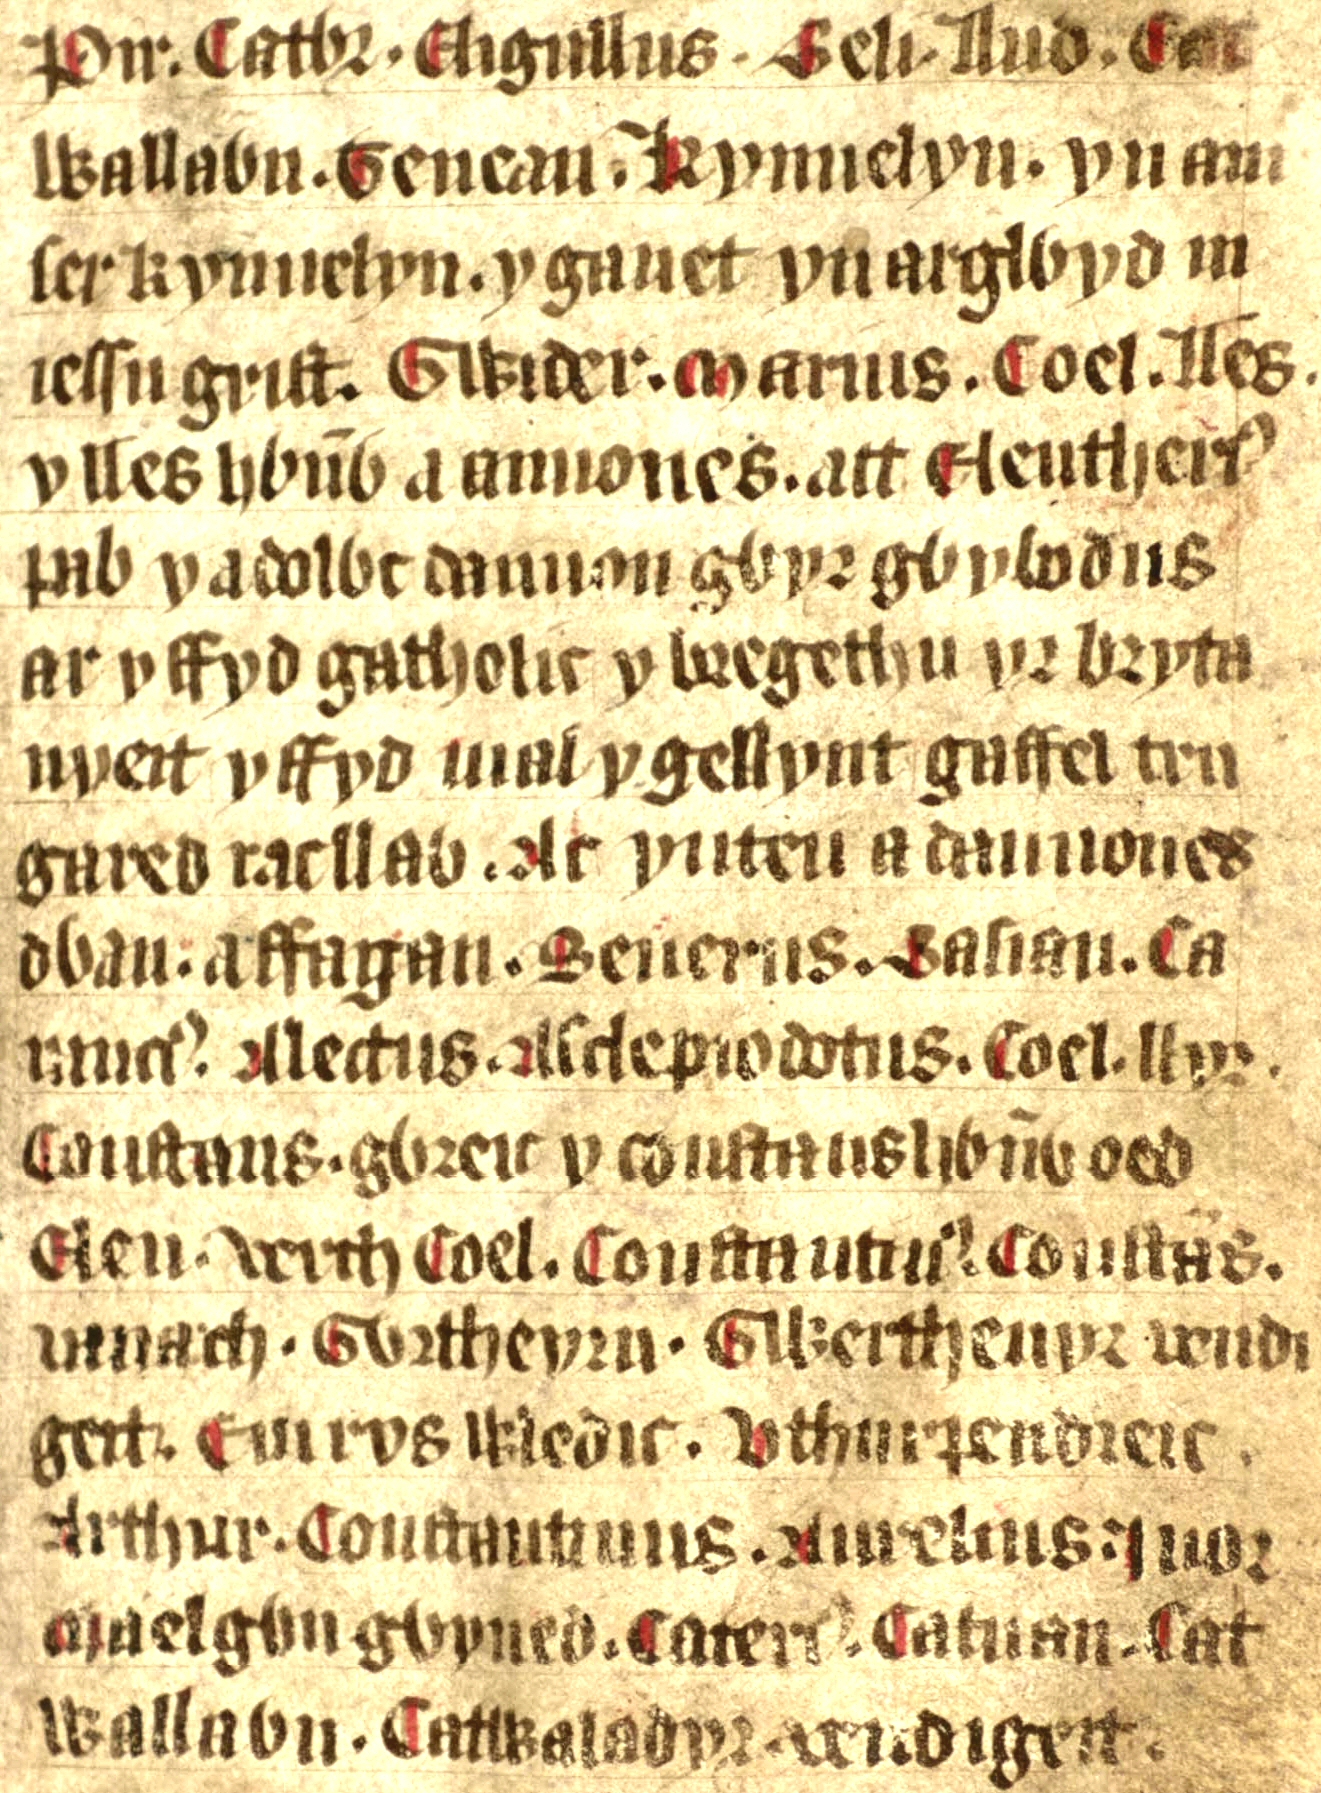 Pir. Capỽr. Eligullus. Beli. llud. Cat
wallaỽn. Teneuan. Kynuelyn. yn am
ser kynuelyn. y ganet yn arglỽyd ni
iessu grist. Gwider. Marius. Coel. lles.
y lles hỽnnỽ a anuones. att Eleutherius
pab y adolỽc danuon gỽyr gỽybodus
ar y ffyd gatholic y bregethu yr bryta
nyeit y ffyd ual y gellynt gaffel tru
gared racllaỽ. Ac ynteu a danuones
dỽan. a ffagan. Seuerus. Basian. Ca
raucius. Allectus. Asclepiodotus. Coel. llyr.
Constans. gỽreic y constans hỽnnỽ oed
Elen. verch Coel. Constantinus. Constans.
uanach. Gỽrtheyrn. Gwertheuyr uendi
geit. Emrys wledic. Vthur pendreic.
Arthur. Constantinus. Aurelius. Iuor
Maelgỽn gỽyned. Catericus. Catuan. Cat
wallaỽn. Catwaladyr uendigeit.